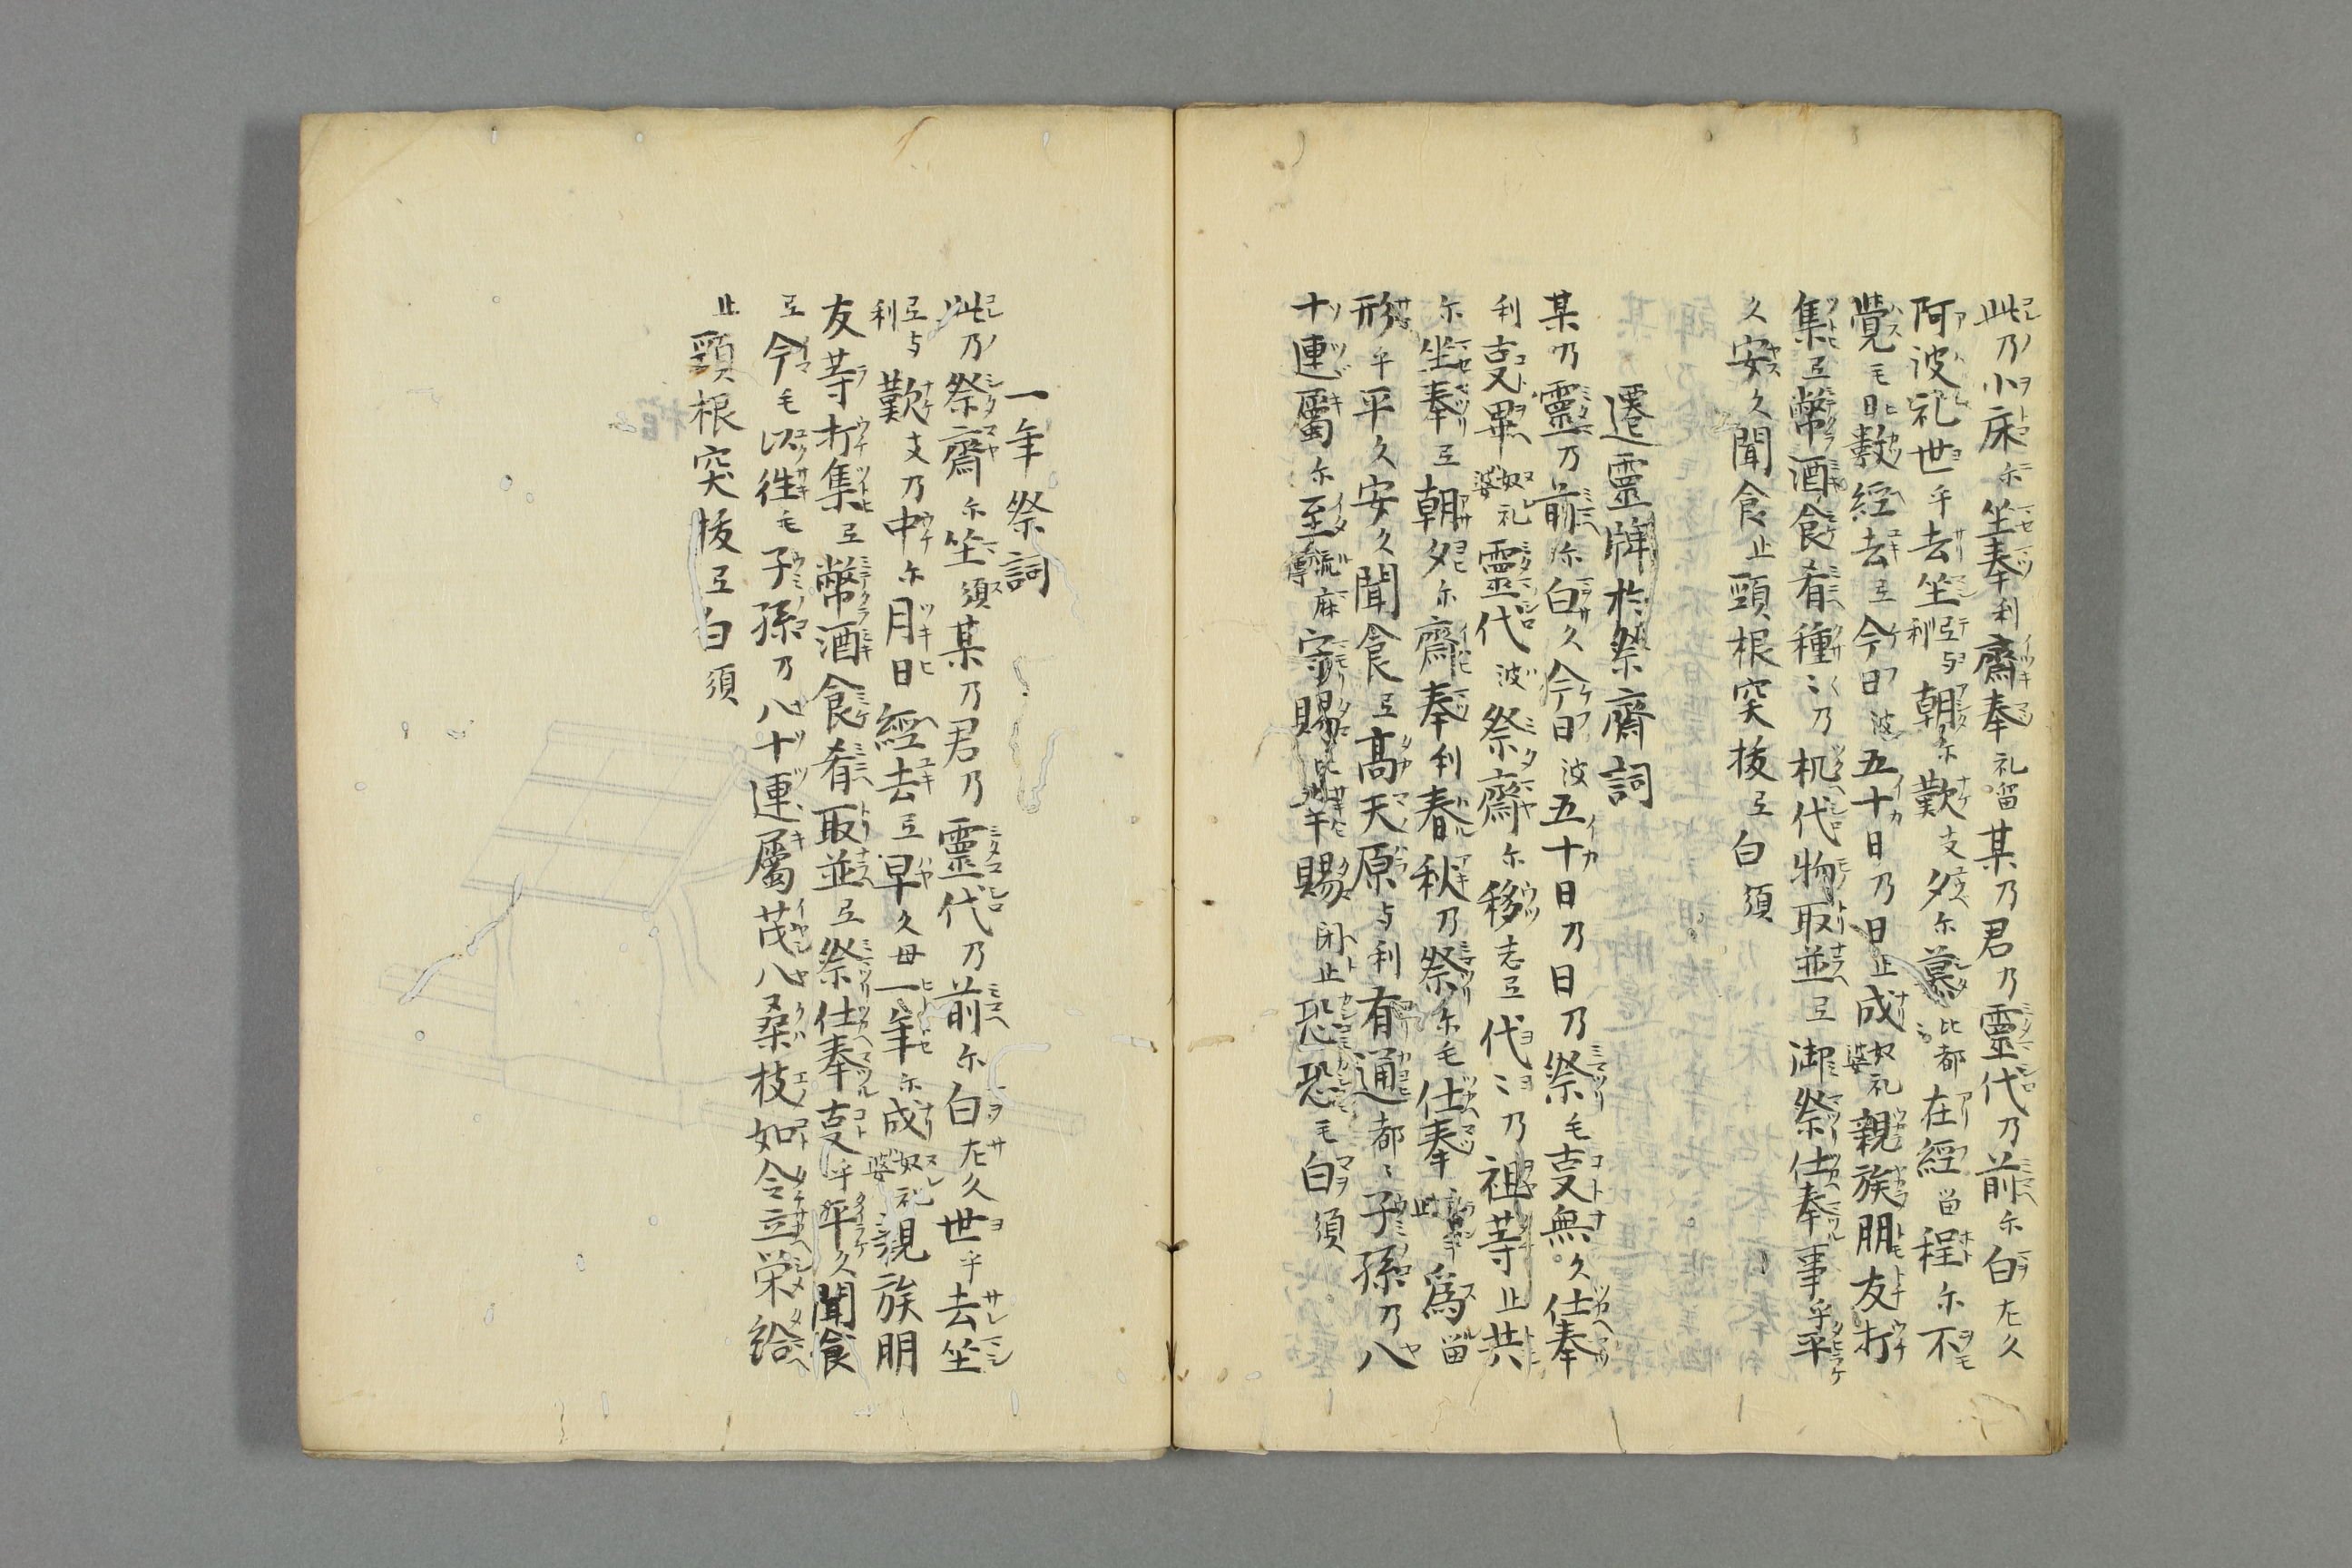 此乃小床尓坐奉利齋奉礼留某乃君乃靈代乃前尓白左久
阿波礼世乎去坐弖与利朝尓歎支夕尓慕比都々在經留程尓不
覺毛日數経去弖今日波五十日乃日止成奴礼婆親族朋友打
集弖幣酒食肴種々乃机代物取並弖御祭仕奉事乎平
久安久聞食止頸根突拔弖白須
遷靈牌於祭齋詞
某乃靈乃前尓白久今日波五十日乃日乃祭毛叓無久仕奉
利叓畢奴礼婆靈代波祭齋尓移志弖代々乃祖等止共
尓坐奉弖朝夕尓齋奉利春秋乃祭尓毛仕奉止爲留
形乎平久安久聞食弖高天原与利有通都々子孫乃八
十連屬尓至流麻守賜比賜閇止恐恐毛白須
一年祭詞
此乃祭齋尓坐須某乃君乃靈代乃前尓白左久世乎去坐
弖与利歎支乃中尓月日經去弖早久毋一年尓成奴礼婆親族朋
友等打集弖幣酒食肴取並弖祭仕奉叓乎平久聞食
弖今毛以徃毛子孫乃八十連屬茂八桑枝如令立栄給
止頸根突拔弖白須